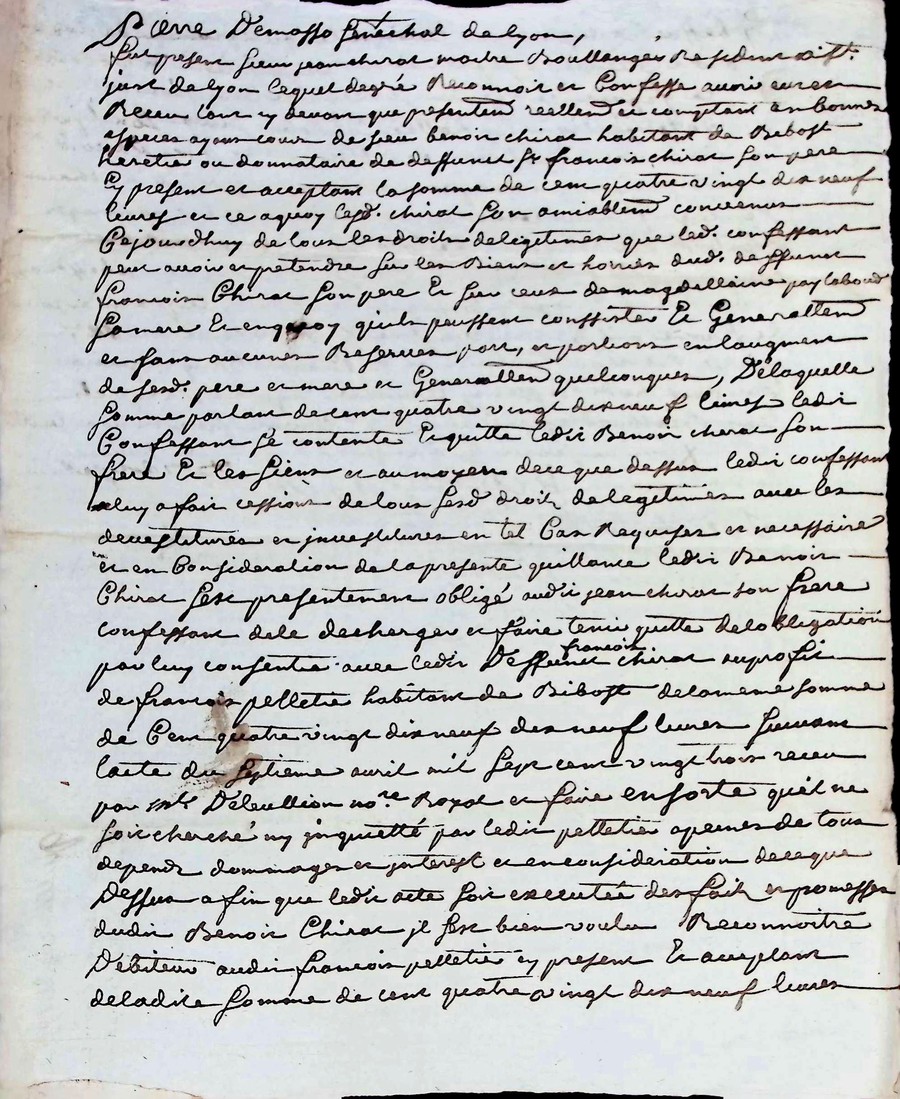 Pierre Demasso senechal de lyon,
fut present sieur jean chirat maitre Boullanger Resident a st.
just de lyon lequel degré Reconnoit et Confesse avoir eu et
Receu tant cy devant que presentem̄ reellem̄ et comptant en bonnes
especes ayant cour de sieur benoit chirat habitant de Bibost
heretié ou donnataire de deffunct sr francois chirat son pere
Cy present et acceptant la somme de cent quatre vingt dix neuf
livres et ce aquoy lesd. chirat son amiablem̄ convenus
Cejourdhuy de tous les droits de legitimes que led. confessant
peut avoir et pretendre sur les Biens et hoiries dud. deffunct
francois Chirat son pere Et sur ceux de magdellaine
sa mere Et enquoy quils peussent conssister Et Generallem̄
et sans aucunes Reserves part, et portions en laugment
de sesd. pere et mere et Generallem̄ quelconques, Delaquelle
somme partant de cent quatre vingt dix neuf livres ledit
Confessant se contente Et quitte ledit Benoit chirat son
frere Et les siens et au moyen de ce que dessus ledit confessant
luy a fait cession de tous sesd droit de legitimes avec les
devestitures et jnvestitures en tel Cas Requises et necessaire
et en Consideration de la presente quittance ledit Benoit
Chirat sest presentement obligé audit jean chirat son frere
confessant de le decharger et faire tenir quitte de lobligation
par luy consentie avec ledit Deffunct francois chirat au profit
de francois pelletié habitant de Bibost de la meme somme
de Cent quatre vingt dix neuf dix neuf livres suivant
lacte du septieme avril mil sept cent vingt trois receu
par no.re Royal et faire ensorte quil ne
soit cherché ny jnquietté par ledit pelletier apeines de tous
depend dommages et jnterest et en consideration de ce que
Dessus afin que ledit acte soit executée des fait et promesses
dudit Benoit Chirat jl sest bien voulu Reconnoitre
Debiteur audit francois pelletier cy present Et acceptant
de ladite somme de cent quatre vingt dix neuf livres